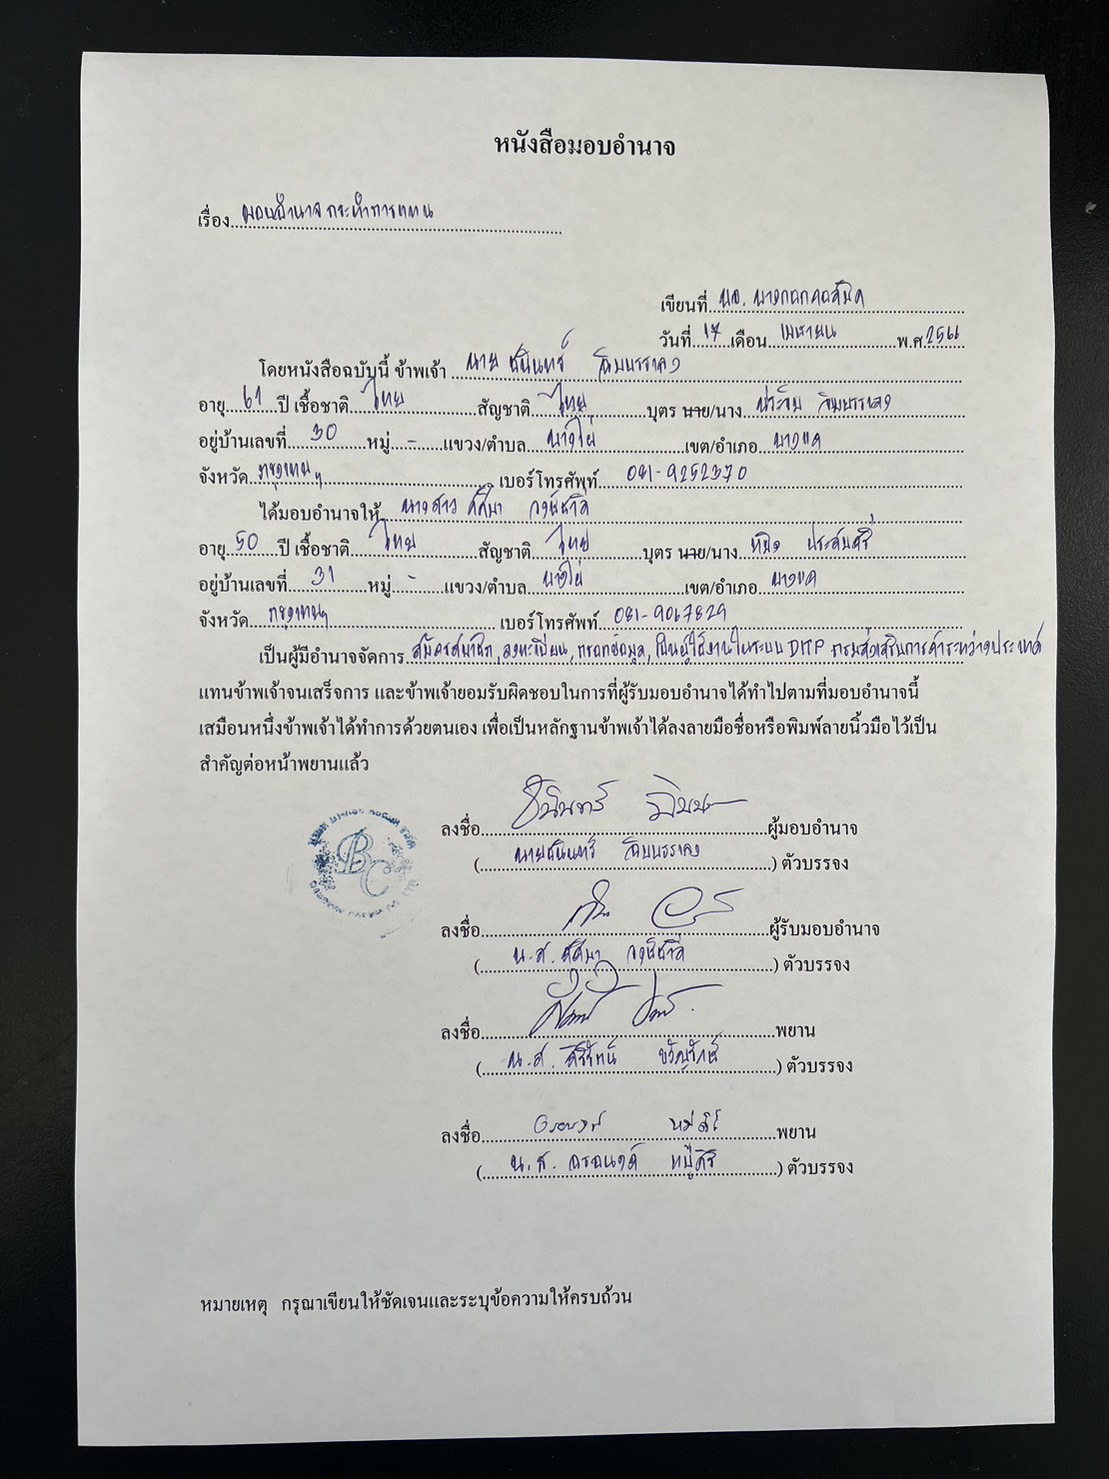 หนังสือมอบอำนาจ
เรื่อง มอบอำนาจกระทำการแทน
เขียนที่ บจ. บางกอกคอสมิค
วันที่ 17 เดือน เมษายน พ.ศ. 2566
โดยหนังสือฉบับนี้ ข้าพเจ้า นาย ชนินทร์
อายุ 61 ปี เชื้อชาติ ไทย สัญชาติ ไทย บุตร นาย/นาง
อยู่บ้านเลขที่ 30 หมู่ - แขวง/ตำบล บางไผ่ เขต/อำเภอ บางแค
จังหวัด กรุงเทพฯ เบอร์โทรศัพท์ 081-9252370
ได้มอบอำนาจให้ นางสาว
อายุ 50 ปี เชื้อชาติ ไทย สัญชาติ ไทย บุตร นาย/นาง ประสมศรี
อยู่บ้านเลขที่ 31 หมู่ - แขวง/ตำบล บางไผ่ เขต/อำเภอ บางแค
จังหวัด กรุงเทพฯ เบอร์โทรศัพท์ 081-9067829
เป็นผู้มีอำนาจจัดการ สมัครสมาชิก, ลงทะเบียน, กรอกข้อมูล, เป็นผู้ใช้งานในระบบ DITP กรมส่งเสริมการค้าระหว่างประเทศ
แทนข้าพเจ้าจนเสร็จการ และข้าพเจ้ายอมรับผิดชอบในการที่ผู้รับมอบอำนาจได้ทำไปตามที่มอบอำนาจนี้
เสมือนหนึ่งข้าพเจ้าได้ทำการด้วยตนเอง เพื่อเป็นหลักฐานข้าพเจ้าได้ลงลายมือชื่อหรือพิมพ์ลายนิ้วมือไว้เป็น
สำคัญต่อหน้าพยานแล้ว
BC
ลงชื่อ ชนินทร์ ผู้มอบอำนาจ
( นายชนินทร์ ) ตัวบรรจง
ลงชื่อ ผู้รับมอบอำนาจ
( น.ส. ) ตัวบรรจง
ลงชื่อ พยาน
( น.ส. ศิริรัตน์ ขวัญรักษ์ ) ตัวบรรจง
ลงชื่อ พยาน
( น.ส. ) ตัวบรรจง
หมายเหตุ กรุณาเขียนให้ชัดเจนและระบุข้อความให้ครบถ้วน